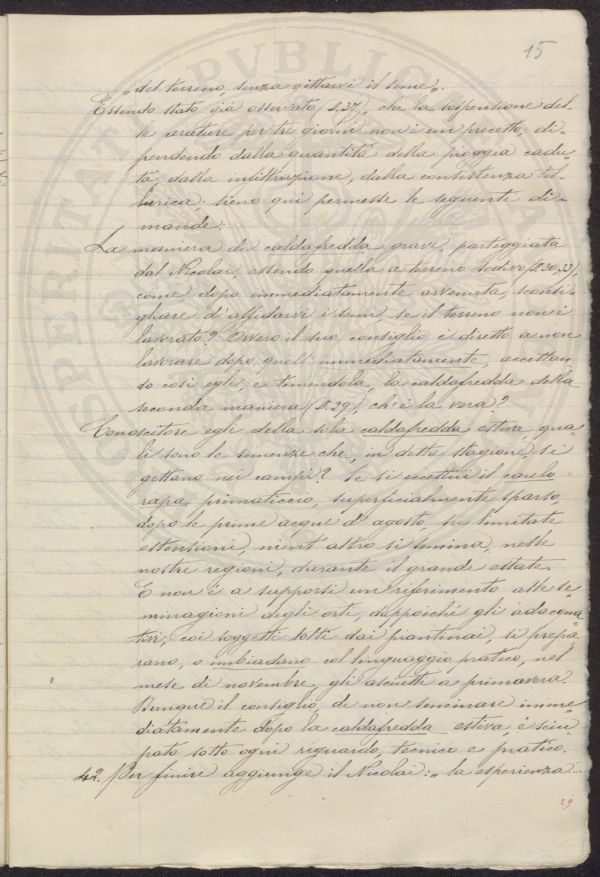 15
„del terreno senza gittarvi il seme„.
Essendo stato già osservato (§.37), che la sospensione del-
le arature per tre giorni non è un precetto, di-
pendendo dalla quantità della pioggia cadu-
ta, dalla infiltrazione, dalla consistenza tel-
lurica: sieno qui permesse le seguenti di-
mande:
La maniera di caldafredda grave, parteggiata
dal Nicolai, essendo quella a terreno sodivo (§.30,33),
come, dopo immediatamente avvenuta, sconsi-
gliare d'affidarvi i semi se il terreno non è
lavorato? Ovvero il suo consiglio è diretto a non
lavorare dopo, quell'immediatamente, accettan-
do così egli, e temendola, la caldafredda della
seconda maniera (§.39), ch'è la vera?
Conoscitore egli della sola caldafredda estiva, qua-
li sono le semenze che, in detta stagione, si
gettano nei campi? Se si eccettui il caulo
rapa primaticcio, superficialmente sparso
dopo le prime acque d'agosto, su limitate
estensioni, nient'altro si semina, nelle
nostre regioni, durante il grande estate.
E non è a supporsi un riferimento alle se-
minagioni degli orti, dappoichè gli adacqua-
tivi, coi soggetti tolti dai piantinai, si prepa-
rano, o imbiadano col linguaggio pratico, nel
mese di novembre, gli asciutti a primavera.
Dunque il consiglio, di non seminare imme-
diatamente dopo la caldafredda estiva, è sciu-
pato sotto ogni riguardo, tecnico e pratico.
42. Per finire aggiunge il Nicolai: „la esperienza
29
SPERITAT PVBLIO